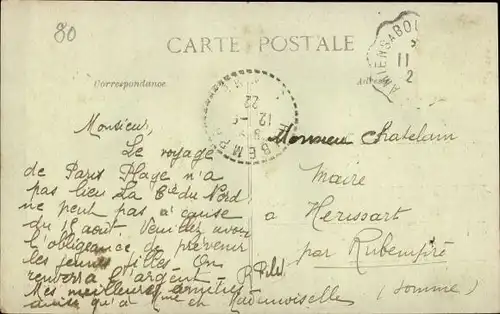 80
CARTE POSTALE
Correspondance
Monsieur,
Le voyage
de Paris Plage n'a
pas lieu La Cie du Nord
ne peut pas à cause
du 15 août. Veuillez avoir
l'obligeance de prévenir
les jeunes filles. On
renverra l'argent.
Mes meilleures amitiés
ainsi qu'à Mme et Mademoiselle
Monsieur Chatelain
Maire
à Herissart
par Rubempré
(Somme)
11
2
22
12